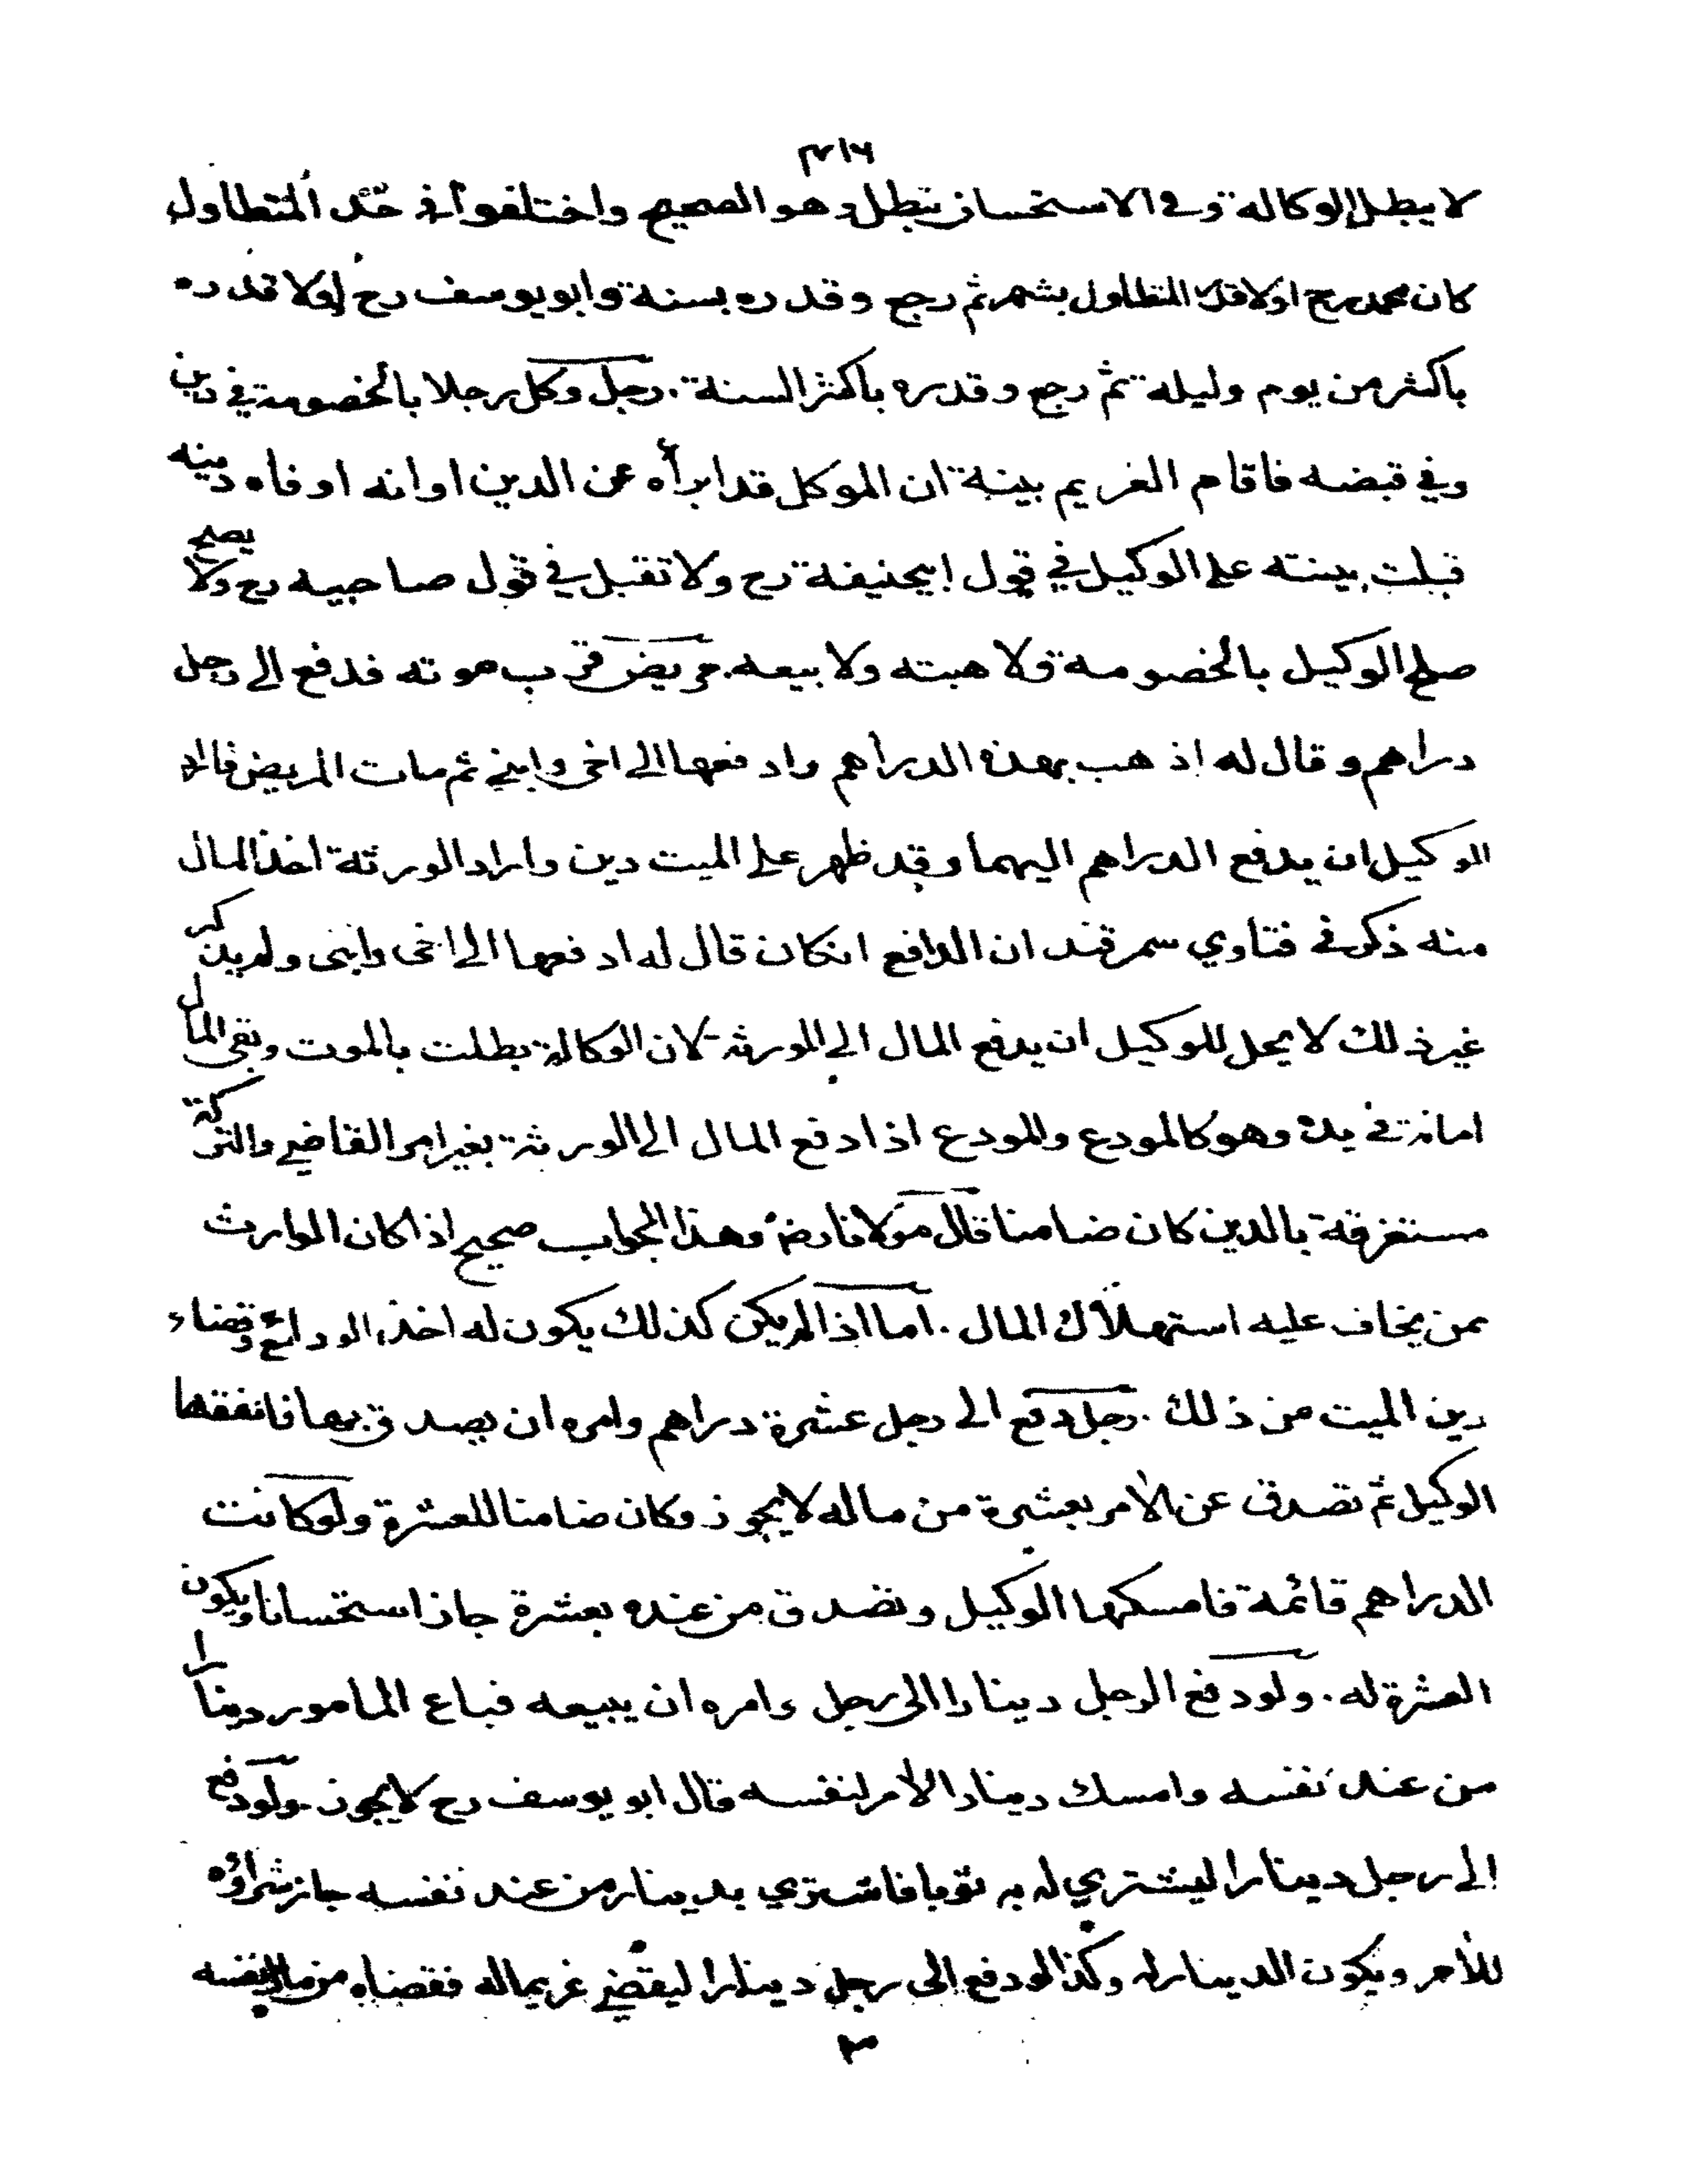 ٣١٦
لا يبطل الوكالة وفي الاستحسان تبطل وهو الصحيح واختلفوا في حد المتطاول
كان محمد رح اولا قدر المتطاول بشهر ثم رجع وقدره بسنة وابو يوسف رح اولا قدره
باكثر من يوم وليلة ثم رجع وقدره باكثر السنة . رجل وكل رجلا بالخصومة في دين
وفي قبضه فاقام الغريم بينة ان الموكل قد ابرأه عن الدين او انه اوفاه دينه
قبلت بينته على الوكيل في قول ابيحنيفة رح ولا تقبل في قول صاحبيه رح ولا يصح
صلح الوكيل بالخصومة ولا هبته ولا بيعه . مريض قرب موته فدفع الى رجل
دراهم وقال له اذهب بهذه الدراهم وادفعها الى اخي وابني ثم مات المريض فاراد
الوكيل ان يدفع الدراهم اليهما وقد ظهر على الميت دين واراد الورثة اخذ المال
منه ذكر في فتاوي سمرقند ان الدافع انكان قال له ادفعها الى اخي وابني ولم يذكر
غير ذلك لا يحل للوكيل ان يدفع المال الى الورثة لان الوكالة بطلت بالموت وبقي المال
امانة في يده وهو كالمودع والمودع اذا دفع المال الى الورثة بغير امر القاضي والتركة
مستغرقة بالدين كان ضامنا قال مولانا رض وهذا الجواب صحيح اذا كان الوارث
ممن يخاف عليه استهلاك المال . اما اذا لم يكن كذلك يكون له اخذ الودائع وقضاء
دين الميت من ذلك . رجل دفع الى رجل عشرة دراهم وامره ان يصدق بها فانفقها
الوكيل ثم تصدق عن الآمر بعشرة من ماله لا يجوز وكان ضامنا للعشرة ولو كانت
الدراهم قائمة فامسكها الوكيل وتصدق من عنده بعشرة جاز استحسانا ويكون
العشرة له . ولو دفع الرجل دينارا الى رجل وامره ان يبيعه فباع المامور دينارا
من عند نفسه وامسك دينار الآمر لنفسه قال ابو يوسف رح لا يجوز . ولو دفع
الى رجل دينارا ليشتري له به ثوبا فاشتري بدينار من عند نفسه جاز شراؤه
للآمر ويكون الدينار له وكذا لو دفع الى رجل دينارا ليقضي غريما له فقضاه من مال نفسه